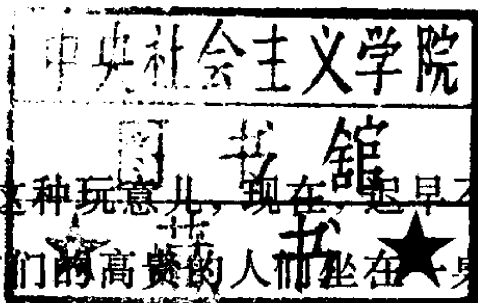 中央社会主义学院
图书馆
这种玩意儿，现在，迟早不
藏书
们的高贵的人们坐在一